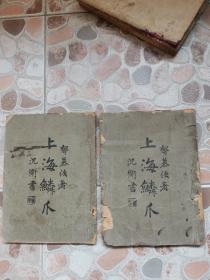 郁慕俠著
上海鱗爪
沈衛書
郁慕俠著
上海鱗爪
沈衛書